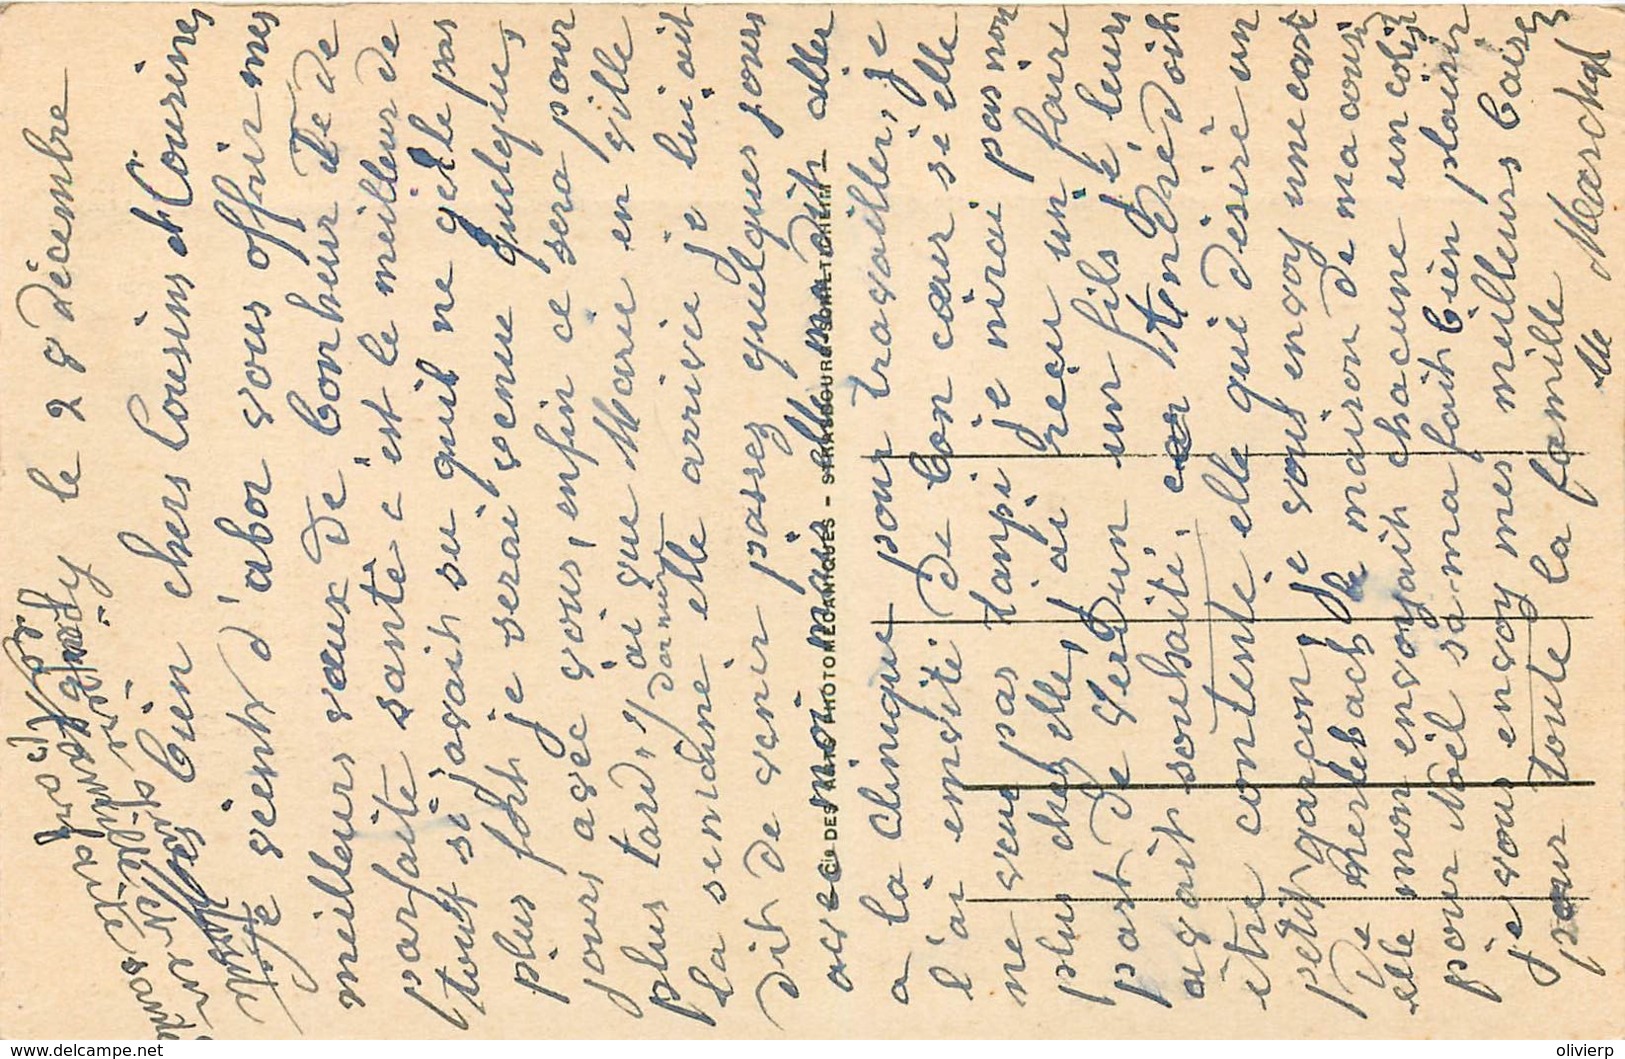 le 28 décembre
Bien chers Cousins et Cousines
Je vient d'abor vous offrir mes
meilleurs vœux de bonheur et de
parfaite santé c'est le meilleur de
tout si j'avait su qu'il ne gèle pas
plus fort je serai venue quelques
jours avec vous, enfin ce sera pour
plus tard, j'ai vue Marie en ville
la semaine dernier elle arrive je lui ait
dit de venir passez quelques jours
avec moi mais elle m'a dit aller
a la clinique pour travailler, je
l'ai envité de bon cœur si elle
ne veut pas tanpi je nirai pas non
plus chez elle, j'ai reçu un faire
part de Verdun un fils je leurs
avait souhaité, car Andrée doit
être contente elle qui désire un
petit garçon, je vous envoy une carte
de Merlebach la maison de ma cousine
elle mon envoyait chacune un colis
pour Noël sa ma fait bien plaisir
je vous envoy mes meilleurs baisers
pour toute la famille
Me Marchal
Cie DES ARTS PHOTOMÉCANIQUES – STRASBOURG-SCHILTIGHEIM
www.delcampe.net
olivierp